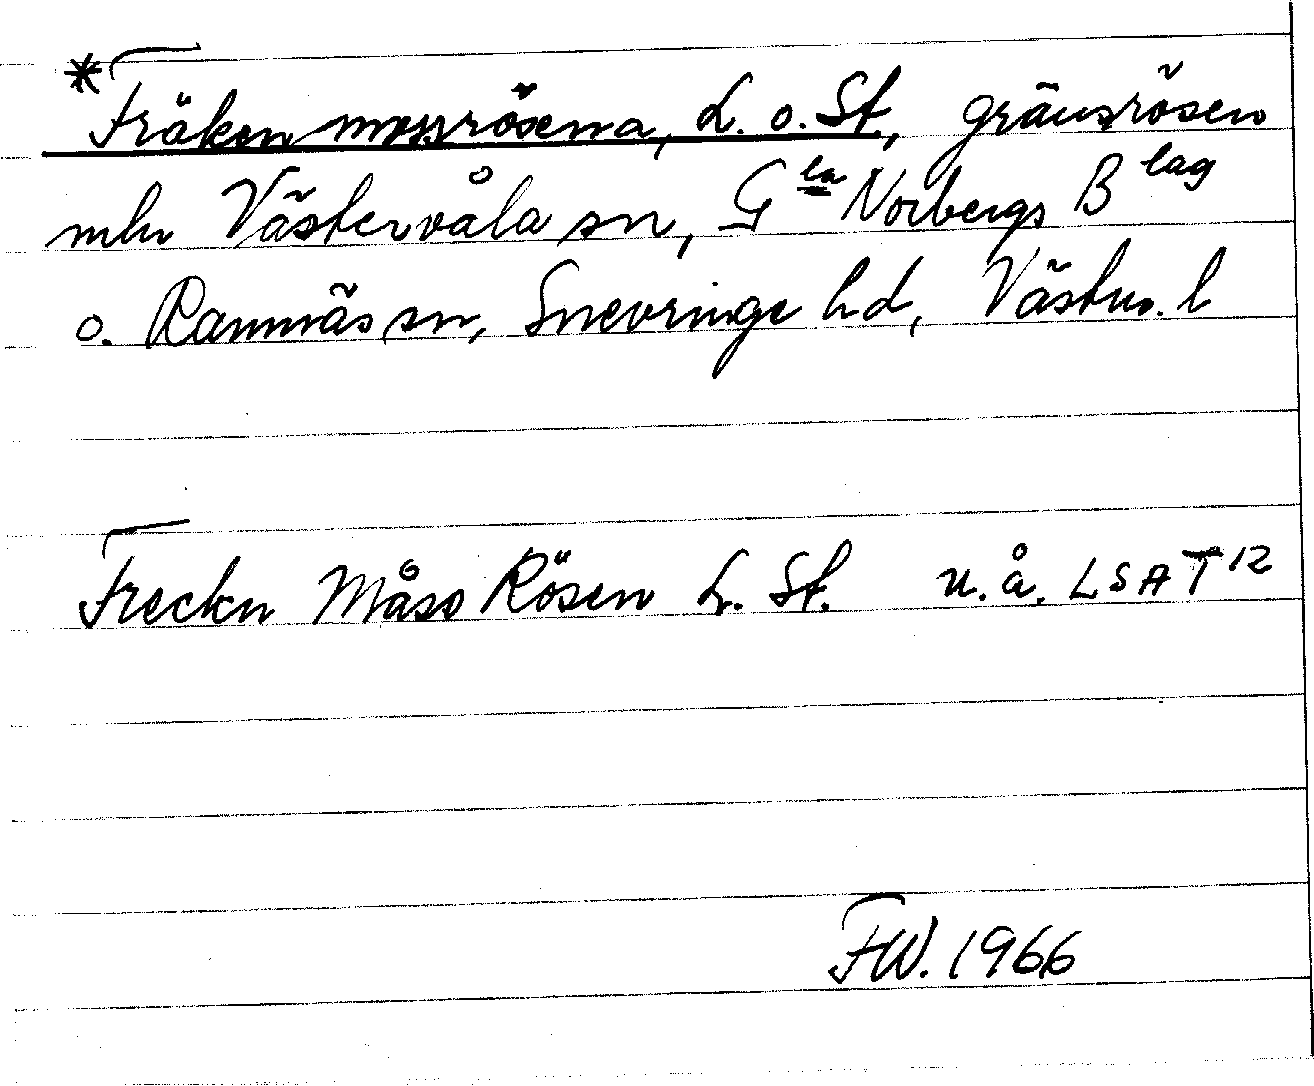 *Fräkenmossrösena, L. o. St, gränsrösen
mln Västervåla sn, Gla Norbergs Blag
o. Ramnäs sn, Snevringe hd, Västm. l
Freckn Måss Rösen L. St. u.å. LSA T12
FW. 1966